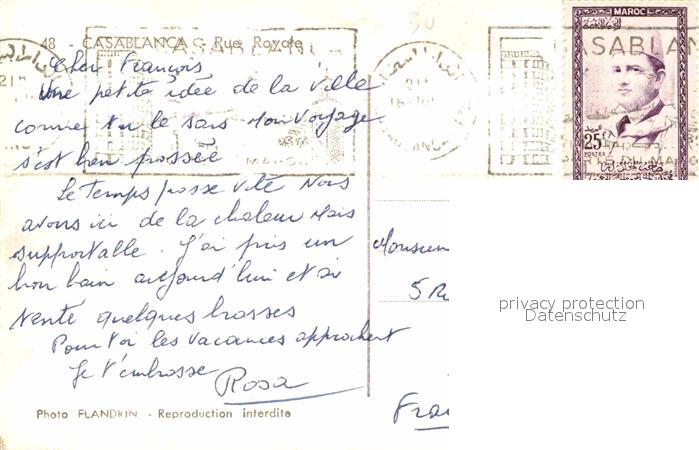 48 - CASABLANCA - Rue Royale
Cher François
Une petite idée de la ville
comme tu le sais Mon Voyage
s'est bien passée
Le temps passe vite Nous
avons ici de la chaleur Mais
supportable. J'ai pris un
bon bain aujourd'hui et ai
tenté quelques brasses
Pour toi les vacances approchent
Je t'embrasse
Rosa
Photo FLANDRIN - Reproduction interdite
MAROC
25F
POSTES
CASABLANCA
Monsieur
5 R
Fra
privacy protection
Datenschutz